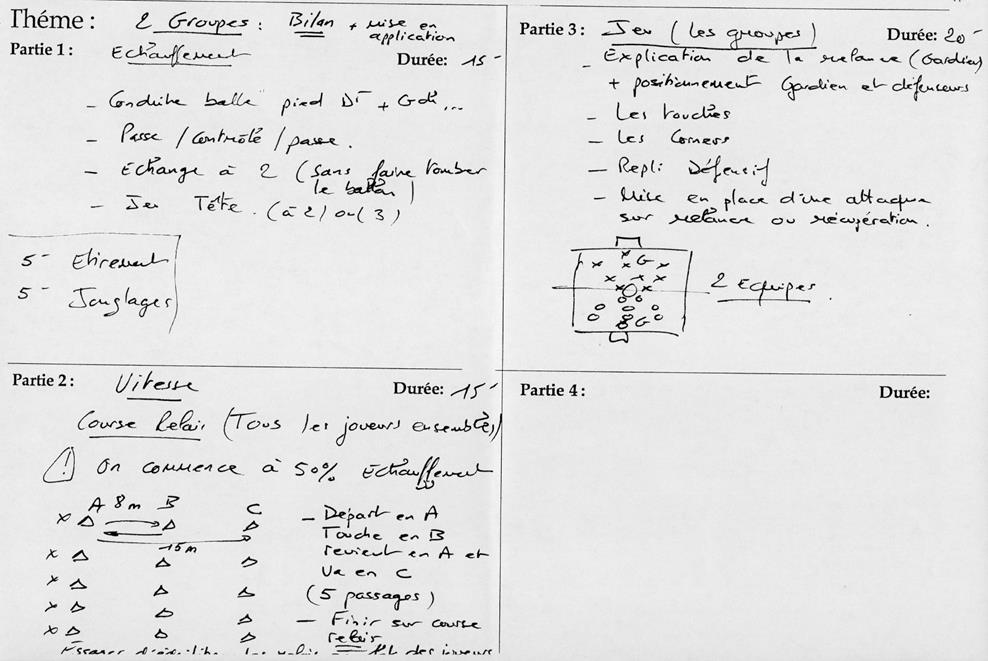 Théme : 2 Groupes : Bilan + mise en
application
Partie 1 : Echauffement Durée: 15'
- Conduite balle pied Dt + Gch...
- Passe / Contrôle / passe.
- Echange à 2 (sans faire tomber
le ballon)
- Jeu Tête. (à 2) ou (3)
5' Etirement
5' Jonglages
Partie 2 : Vitesse Durée: 15'
Course Relais (Tous les joueurs ensembles)
! On commence à 50% Echauffement
A 8m B C
15m
- Départ en A
Touche en B
revient en A et
Va en C
(5 passages)
- Finir sur course
relais
les relais
des joueurs
Partie 3 : Jeu (les groupes) Durée: 20'
- Explication de la relance (Gardien)
+ positionnement Gardien et défenseurs
- Les touches
- Les Corners
- Repli Défensif
- Mise en place d'une attaque
sur relance ou récupération.
G
2 Equipes.
G
Partie 4 : Durée: